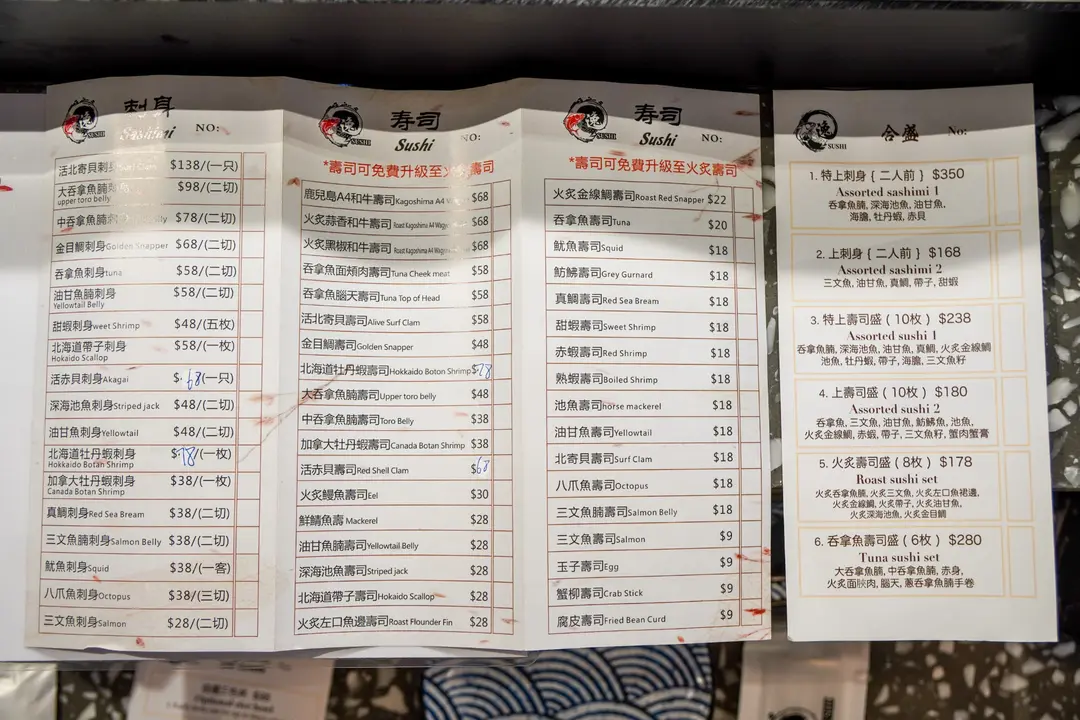 刺身
Sashimi NO:
SUSHI
活北寄貝刺身 $138/(一只)
大吞拿魚腩刺身 $98/(二切)
upper toro belly
中吞拿魚腩刺身 $78/(二切)
金目鯛刺身Golden Snapper $68/(二切)
吞拿魚刺身tuna $58/(二切)
油甘魚腩刺身 $58/(二切)
Yellowtail Belly
甜蝦刺身weet Shrimp $48/(五枚)
北海道帶子刺身 $58/(一枚)
Hokaido Scallop
活赤貝刺身Akagai $68(一只)
深海池魚刺身Striped jack $48/(二切)
油甘魚刺身Yellowtail $48/(二切)
北海道牡丹蝦刺身 $78/(一枚)
Hokkaido Botan Shrimp
加拿大牡丹蝦刺身 $38/(一枚)
Canada Botan Shrimp
真鯛刺身Red Sea Bream $38/(二切)
三文魚腩刺身Salmon Belly $38/(二切)
魷魚刺身Squid $38/(一客)
八爪魚刺身Octopus $38/(三切)
三文魚刺身Salmon $28/(二切)
寿司
Sushi NO:
SUSHI
*壽司可免費升級至火炙壽司
鹿兒島A4和牛壽司Kagoshima A4 $68
火炙蒜香和牛壽司Roast Kagoshima A4 Wagyu $68
火炙黑椒和牛壽司Roast Kagoshima A4 Wagyu $68
吞拿魚面頰肉壽司Tuna Cheek meat $58
吞拿魚腦天壽司Tuna Top of Head $58
活北寄貝壽司Alive Surf Clam $58
金目鯛壽司Golden Snapper $48
北海道牡丹蝦壽司Hokkaido Boton Shrimp $78
大吞拿魚腩壽司Upper toro belly $48
中吞拿魚腩壽司Toro Belly $38
加拿大牡丹蝦壽司Canada Botan Shrimp $38
活赤貝壽司Red Shell Clam $68
火炙鰻魚壽司Eel $30
鮮鯖魚壽 Mackerel $28
油甘魚腩壽司Yellowtail Belly $28
深海池魚壽司Striped jack $28
北海道帶子壽司Hokaido Scallop $28
火炙左口魚邊壽司Roast Flounder Fin $28
寿司
Sushi NO:
SUSHI
*壽司可免費升級至火炙壽司
火炙金線鯛壽司Roast Red Snapper $22
吞拿魚壽司Tuna $20
魷魚壽司Squid $18
魴鮄壽司Grey Gurnard $18
真鯛壽司Red Sea Bream $18
甜蝦壽司Sweet Shrimp $18
赤蝦壽司Red Shrimp $18
熟蝦壽司Boiled Shrimp $18
池魚壽司horse mackerel $18
油甘魚壽司Yellowtail $18
北寄貝壽司Surf Clam $18
八爪魚壽司Octopus $18
三文魚腩壽司Salmon Belly $18
三文魚壽司Salmon $9
玉子壽司Egg $9
蟹柳壽司Crab Stick $9
腐皮壽司Fried Bean Curd $9
合盛 No:
SUSHI
1. 特上刺身 { 二人前 } $350
Assorted sashimi 1
吞拿魚腩, 深海池魚, 油甘魚,
海膽, 牡丹蝦, 赤貝
2. 上刺身 { 二人前 } $168
Assorted sashimi 2
三文魚, 油甘魚, 真鯛, 帶子, 甜蝦
3. 特上壽司盛 ( 10枚 ) $238
Assorted sushi 1
吞拿魚腩, 深海池魚, 油甘魚, 真鯛, 火炙金線鯛
池魚, 牡丹蝦, 帶子, 海膽, 三文魚籽
4. 上壽司盛 ( 10枚 ) $180
Assorted sushi 2
吞拿魚, 三文魚, 油甘魚, 魴鮄魚, 池魚,
火炙金線鯛, 赤蝦, 帶子, 三文魚籽, 蟹肉蟹膏
5. 火炙壽司盛 ( 8枚 ) $178
Roast sushi set
火炙吞拿魚腩, 火炙三文魚, 火炙左口魚裙邊,
火炙金線鯛, 火炙帶子, 火炙油甘魚,
火炙深海池魚, 火炙金目鯛
6. 吞拿魚壽司盛 ( 6枚 ) $280
Tuna sushi set
大吞拿魚腩, 中吞拿魚腩, 赤身,
火炙面脥肉, 腦天, 蔥吞拿魚腩手卷
SUSHI